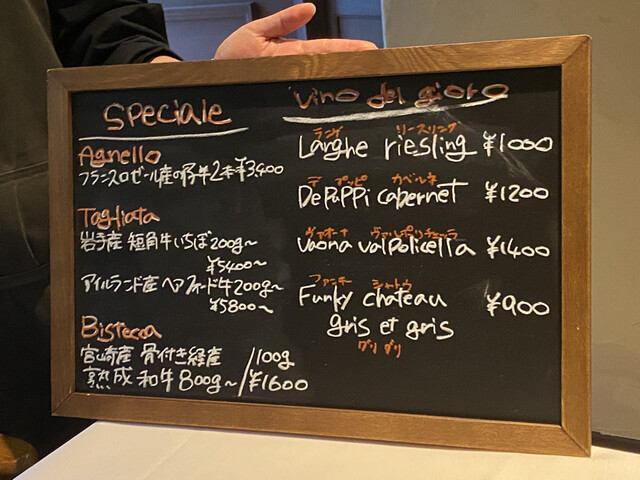 Speciale
Agnello
フランスロゼール産の仔羊2本¥3,400
Tagliata
岩手産 短角牛いちぼ200g〜
¥5400〜
アイルランド産ヘアフォード牛200g〜
¥5800〜
Bistecca
宮崎産 骨付き経産
熟成 和牛 800g〜
/100g
¥1600
Vino del gioro
ランゲ リースリング
Langhe riesling ¥1000
デ プッピ カベルネ
De Puppi cabernet ¥1200
ヴァオーナ ヴァルポリチェッラ
Vaona valpolicella ¥1400
ファンキー シャトウ
Funky chateau ¥900
gris et gris
グリ グリ